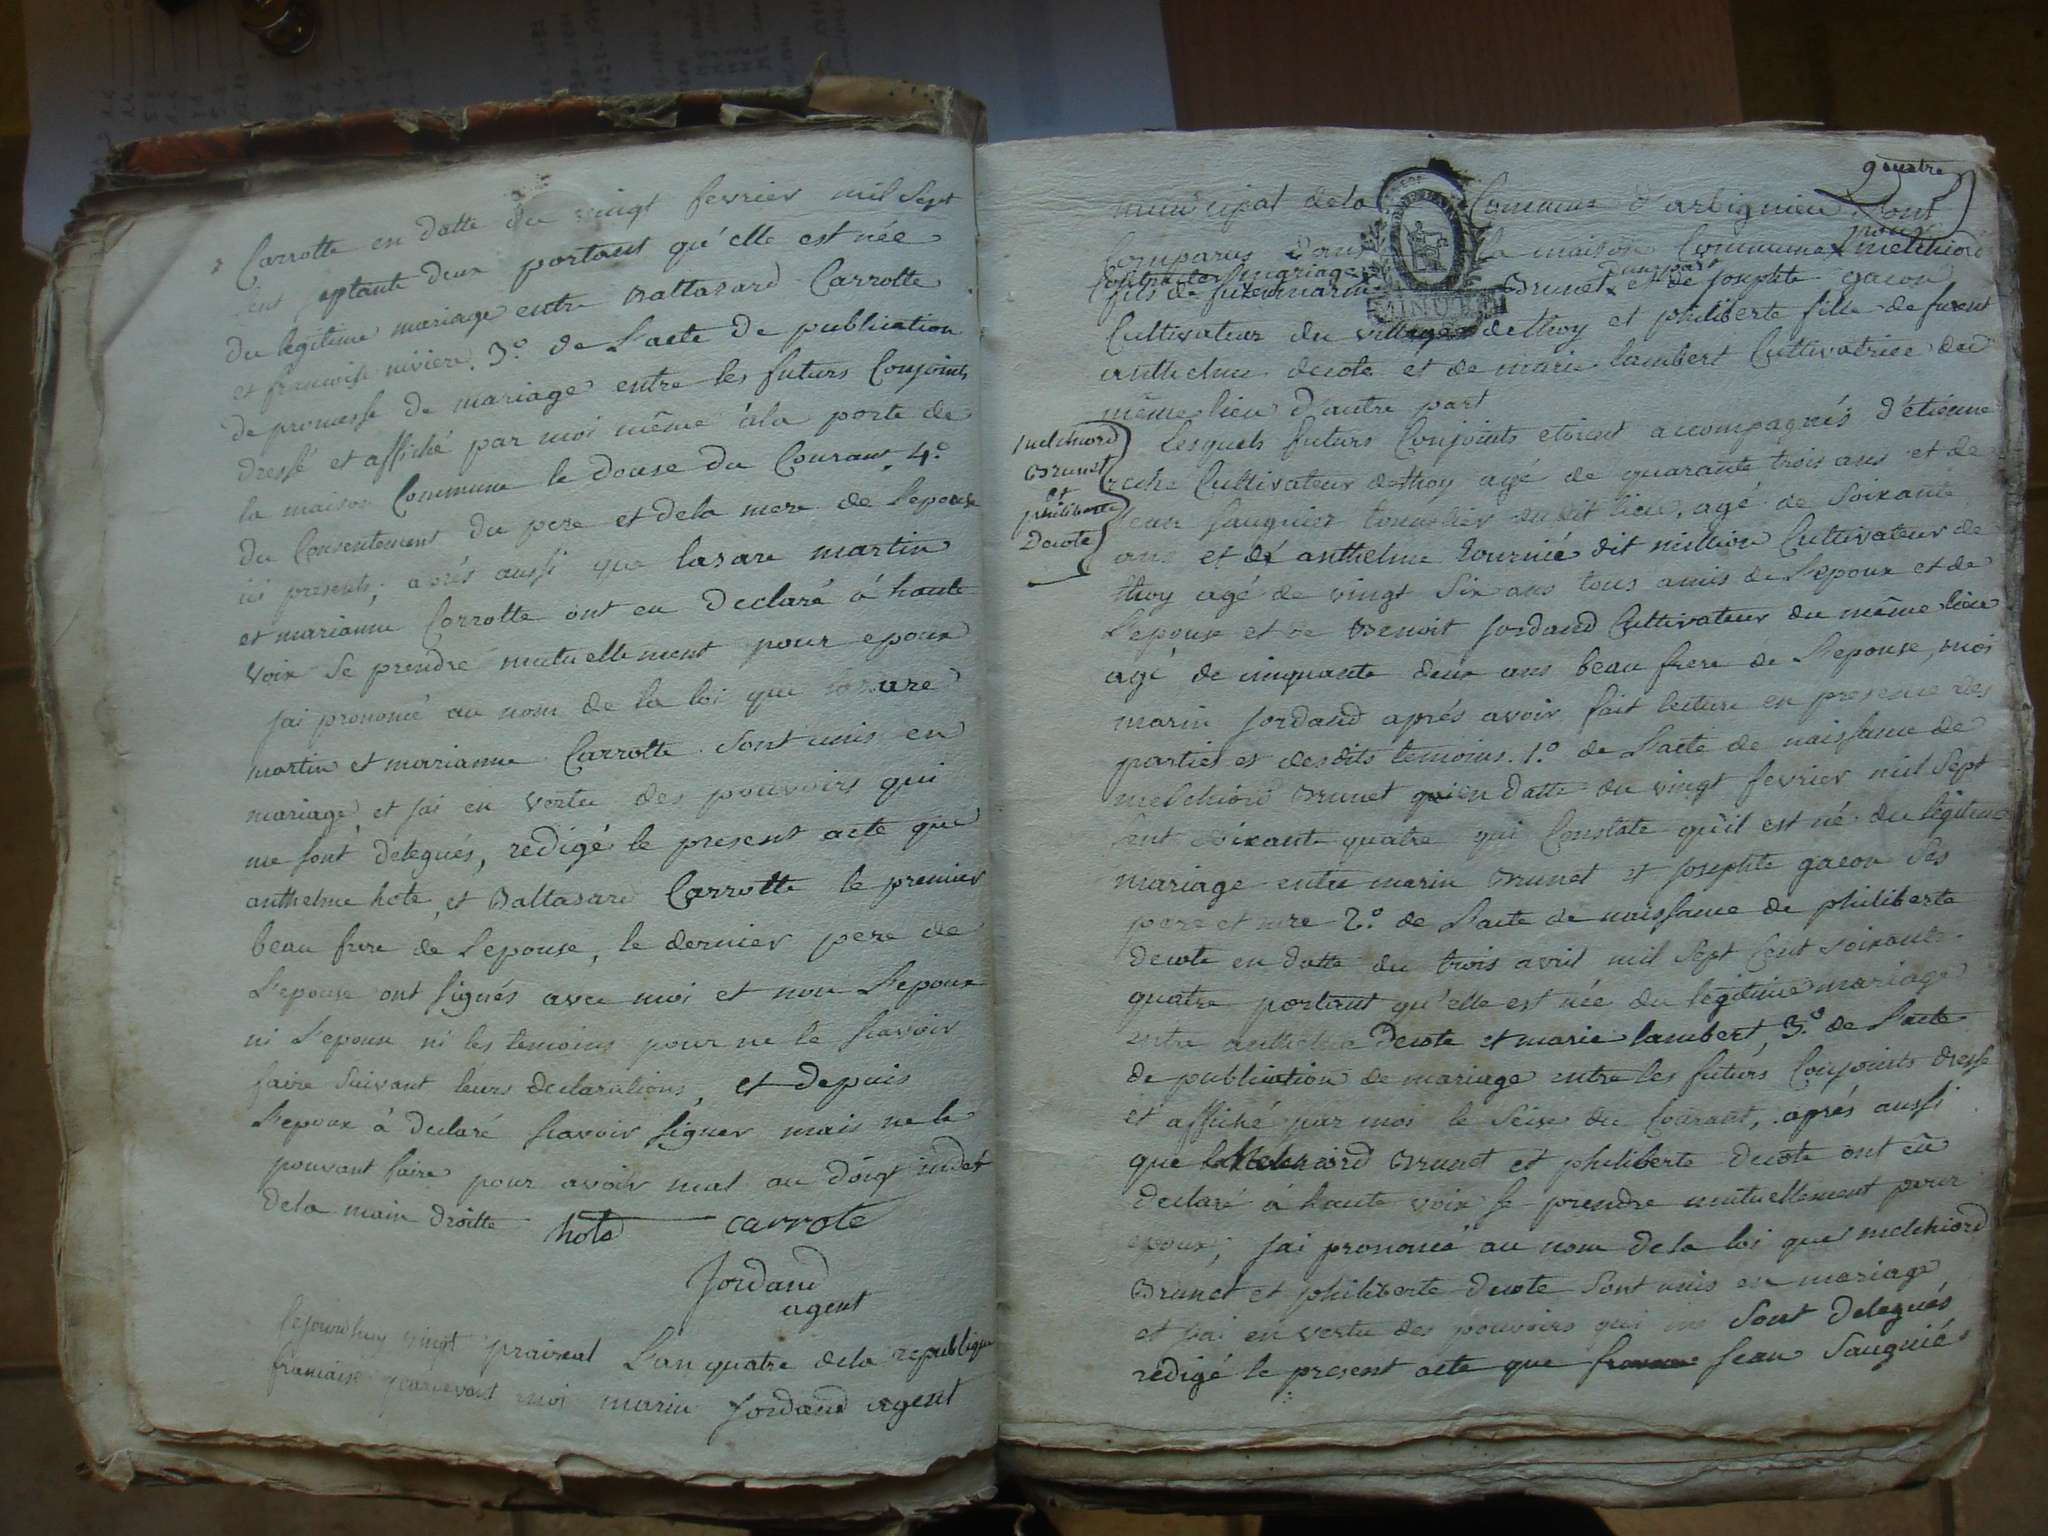 Carrotte en datte du vingt fevrier mil Sept
Cent septante deux portant qu'elle est née
du legitime mariage entre Baltasard Carrotte
et francoise riviere. 3.° de L'acte de publication
de promesse de mariage entre les futurs Conjoints
dressé et affiché par moi même à la porte de
la maison Commune le douse du Courant, 4.°
du Consentement du pere et dela mere de L'epouse
ici presents, aprés aussi que lasare martin
et marianne Carrotte ont eu declaré à haute
voix Se prendre mutuellement pour epoux
jai prononcé au nom de la loi que lasare
martin et marianne Carrotte Sont unis en
mariage et jai en vertu des pouvoirs qui
me sont delegués, redigé le present acte que
anthelme hote, et Baltasard Carrotte le premier
beau frere de L'epouse, le dernier pere de
L'epouse ont signés avec moi et non L'epoux
ni L'epouse ni les temoins pour ne le scavoir
faire suivant leurs declarations, et depuis
L'epoux à declaré scavoir signer mais ne le
pouvant faire pour avoir mal au doigt index
dela main droitte hote carrote
Jordand
agent
Cejourdhuy vingt prairial L'an quatre dela republique
francaise pardevant moi marin Jordand agent
quatre
municipal dela Commune d'arbignieu Sont
Comparus dans la maison Commune pour melchiord
Contracter mariage d'une part
fils de marin Brunet et de josephte gacon
Cultivateur du village de thoy et philiberte fille de
anthelme decote et de marie lambert Cultivatrice du
même lieu d'autre part
melchiord
Brunet
et
philiberte
Decote
lesquels futurs Conjoints etoient accompagnés d'étienne
Cultivateur de thoy agé de quarante trois ans et de
jean Sauguier dudit lieu, agé de Soixante
ans et de anthelme tournié dit Cultivateur de
thoy agé de vingt Six ans tous amis de L'epoux et de
L'epouse et de Benoit Jordand Cultivateur du même lieu
agé de cinquante deux ans beau frere de L'epouse, moi
marin Jordand aprés avoir fait lecture en presence des
parties et desdits temoins. 1.° de L'acte de naissance de
melchiord Brunet en datte du vingt fevrier mil Sept
Cent Soixante quatre qui Constate qu'il est né du legitime
mariage entre marin Brunet et josephte gacon Ses
pere et mere 2.° de L'acte de naissance de philiberte
decote en datte du trois avril mil Sept Cent Soixante
quatre portant qu'elle est née du legitime mariage
entre anthelme Decote et marie lambert, 3.° de L'acte
de publication de mariage entre les futurs Conjoints dressé
et affiché par moi le Seise du Courant, aprés aussi
que Melchiord Brunet et philiberte Decote ont eu
declaré à haute voix se prendre mutuellement pour
epoux, jai prononcé au nom dela loi que melchiord
Brunet et philiberte Decote Sont unis en mariage,
et jai en vertu des pouvoirs qui me Sont delegués
redigé le present acte que jean Sauguié